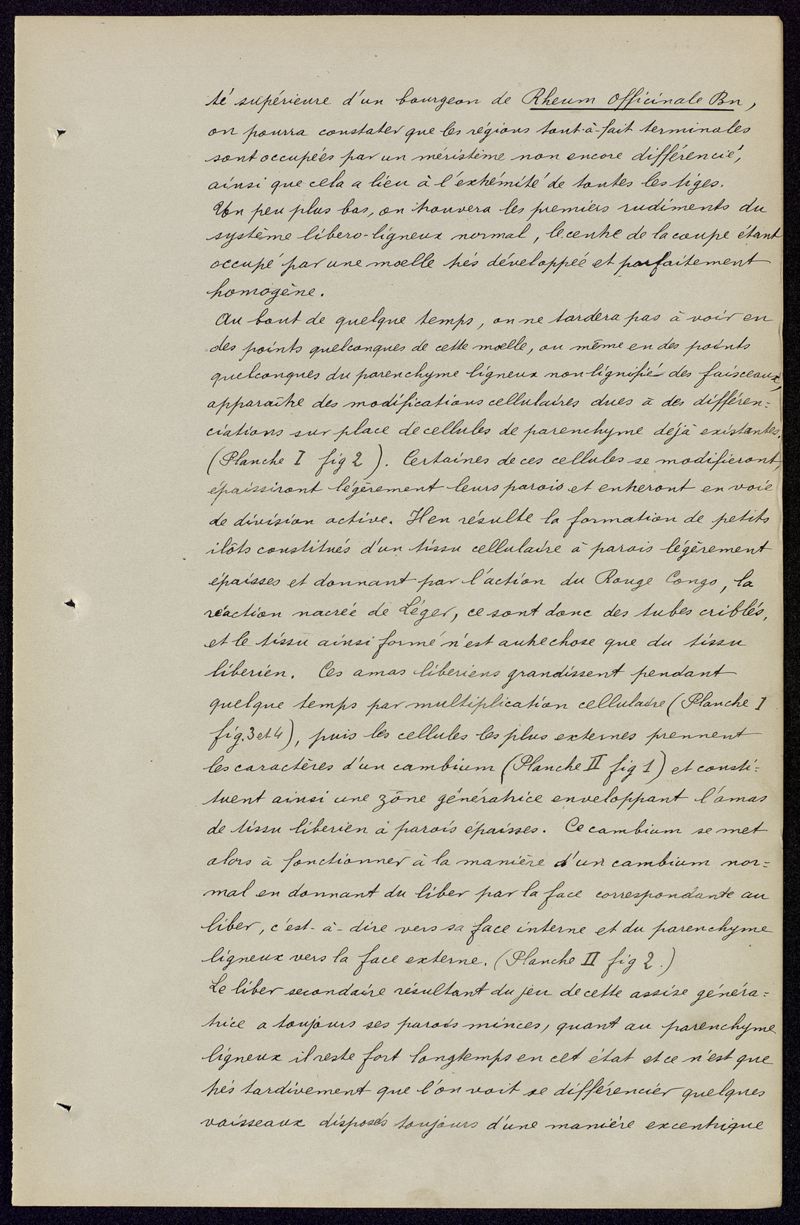 té supérieure d'un bourgeon de Rheum Officinale Bn,
on pourra constater que les régions tout-à-fait terminales
sont occupées par un méristème non encore différencié,
ainsi que cela a lieu à l'extrémité de toutes les tiges.
Un peu plus bas, on trouvera les premiers rudiments du
système libero-ligneux normal, le centre de la coupe étant
occupé par une moelle très développeé et parfaitement
homogène.
Au bout de quelque temps, on ne tardera pas à voir en
des points quelconques de cette moelle, ou même en des points
quelconques du parenchyme ligneux non lignifié des faisceaux,
apparaître des modifications cellulaires dues à des différen=
ciations sur place de cellules de parenchyme déjà existantes.
(Planche I fig 2). Certaines de ces cellules se modifieront,
épaissiront légèrement leurs parois et entreront en voie
de division active. Il en résulte la formation de petits
ilôts constitués d'un tissu cellulaire à parois légèrement
épaisses et donnant par l'action du Rouge Congo, la
réaction nacrée de Léger, ce sont donc des tubes criblés,
et le tissu ainsi formé n'est autre chose que du tissu
libérien. Ces amas libériens grandissent pendant
quelque temps par multiplication cellulaire (Planche I
fig. 3 et 4), puis les cellules les plus externes prennent
les caractères d'un cambium (Planche II fig 1) et consti=
tuent ainsi une zône génératrice enveloppant l'amas
de tissu libérien à parois épaisses. Ce cambium se met
alors à fonctionner à la manière d'un cambium nor=
mal en donnant du liber par la face correspondante au
liber, c'est-à-dire vers sa face interne et du parenchyme
ligneux vers la face externe. (Planche II fig 2.)
Le liber secondaire résultant du jeu de cette assise généra=
trice a toujours ses parois minces, quant au parenchyme
ligneux il reste fort longtemps en cet état et ce n'est que
très tardivement que l'on voit se différencier quelques
vaisseaux disposés toujours d'une manière excentrique